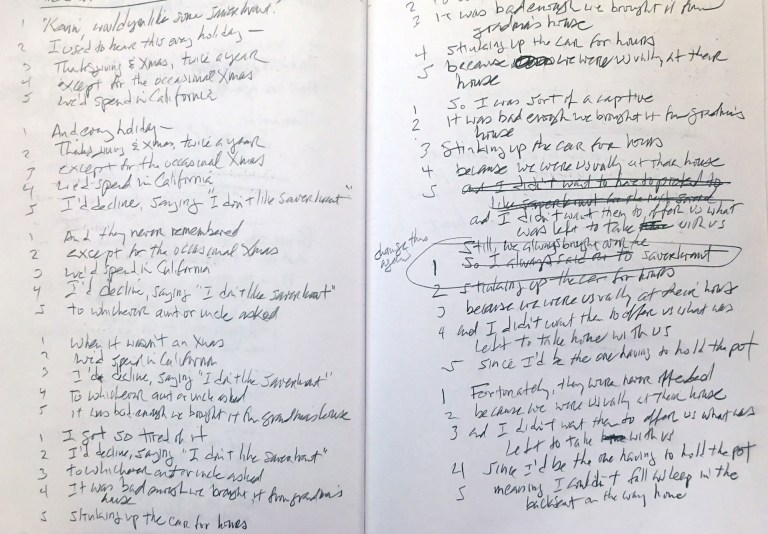 1 "Kevin, would you like some Sauerkraut."
2 I used to hear this every holiday—
3 Thanksgiving & Xmas, twice a year
4 except for the occasional Xmas
5 we'd spend in California
1 And every holiday—
2 Thanksgiving & Xmas, twice a year
3 except for the occasional Xmas
4 we'd spend in California
5 I'd decline, saying "I don't like sauerkraut"
1 And they never remembered
2 except for the occasional Xmas
3 we'd spend in California
4 I'd decline, saying "I don't like sauerkraut"
5 to whichever aunt or uncle asked
1 When it wasn't an Xmas
2 we'd spend in California
3 I'd decline, saying "I don't like sauerkraut"
4 to whichever aunt or uncle asked
5 it was bad enough we brought it from grandma's house
1 I got so tired of it
2 I'd decline, saying "I don't like sauerkraut"
3 to whichever aunt or uncle asked
4 It was bad enough we brought it from grandma's
house
5 stinking up the car for hours
3 it was bad enough we brought it from
grandma's house
4 stinking up the car for hours
5 because we were usually at their
house
1 So I was sort of a captive
2 it was bad enough we brought it from grandma's
house
3 Stinking up the car for hours
4 because we were usually at their house
5 and I didn't want to have to pretend to
like sauerkraut for the
and I didn't want them to offer us what
was left to take with us
change this
again
Still, we always brought some home
1 So I always said no to sauerkraut
2 stinking up the car for hours
3 because we were usually at their house
4 and I didn't want them to offer us what was
left to take home with us
5 since I'd be the one having to hold the pot
1 Fortunately, they were never offended
2 because we were usually at their house
3 and I didn't want them to offer us what was
left to take with us
4 since I'd be the one having to hold the pot
5 meaning I couldn't fall asleep in the
backseat on the way home